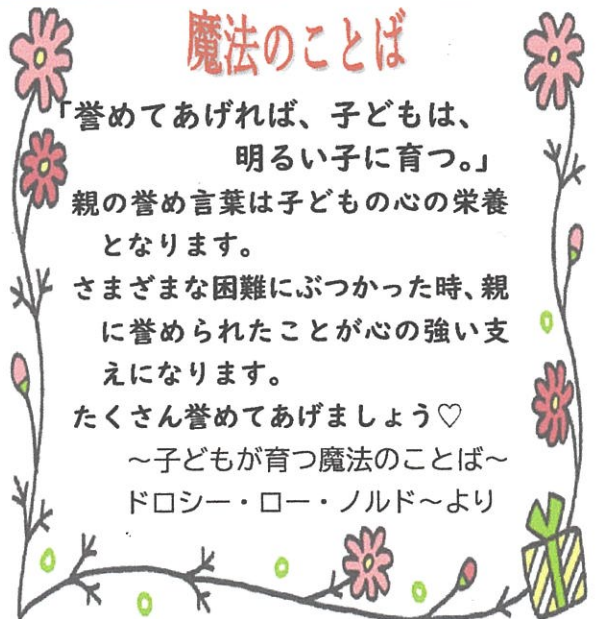 魔法のことば
「誉めてあげれば、子どもは、
明るい子に育つ。」
親の誉め言葉は子どもの心の栄養
となります。
さまざまな困難にぶつかった時、親
に誉められたことが心の強い支
えになります。
たくさん誉めてあげましょう♡
～子どもが育つ魔法のことば～
ドロシー・ロー・ノルド～より